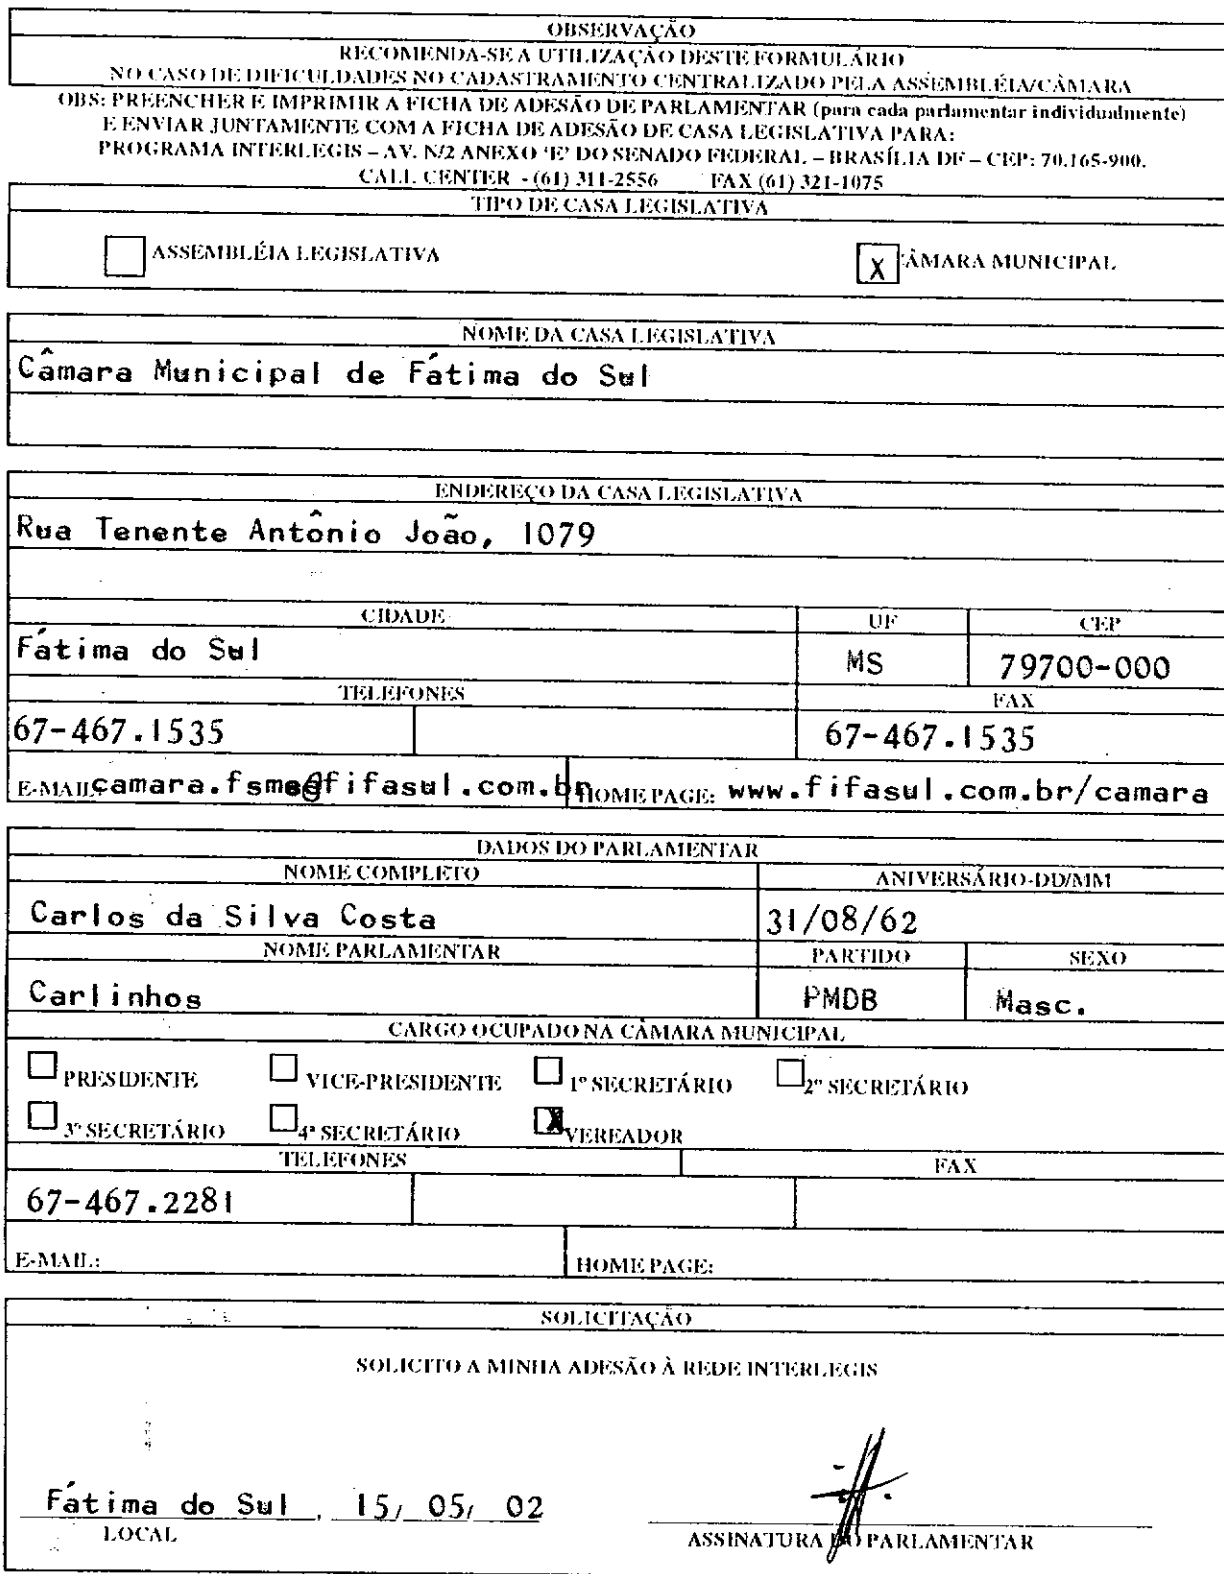 OBSERVAÇÃO
RECOMENDA-SE A UTILIZAÇÃO DESTE FORMULÁRIO
NO CASO DE DIFICULDADES NO CADASTRAMENTO CENTRALIZADO PELA ASSEMBLÉIA/CÂMARA
OBS: PREENCHER E IMPRIMIR A FICHA DE ADESÃO DE PARLAMENTAR (para cada parlamentar individualmente)
E ENVIAR JUNTAMENTE COM A FICHA DE ADESÃO DE CASA LEGISLATIVA PARA:
PROGRAMA INTERLEGIS – AV. N/2 ANEXO 'E' DO SENADO FEDERAL – BRASÍLIA DF – CEP: 70.165-900.
CALL CENTER - (61) 311-2556 FAX (61) 321-1075
TIPO DE CASA LEGISLATIVA
ASSEMBLÉIA LEGISLATIVA X ÂMARA MUNICIPAL
NOME DA CASA LEGISLATIVA
Câmara Municipal de Fátima do Sul
ENDEREÇO DA CASA LEGISLATIVA
Rua Tenente Antônio João, 1079
CIDADE UF CEP
Fátima do Sul MS 79700-000
TELEFONES FAX
67-467.1535 67-467.1535
E-MAIL: HOME PAGE: www.fifasul.com.br/camara
DADOS DO PARLAMENTAR
NOME COMPLETO ANIVERSÁRIO-DD/MM
Carlos da Silva Costa 31/08/62
NOME PARLAMENTAR PARTIDO SEXO
Carlinhos PMDB Masc.
CARGO OCUPADO NA CÂMARA MUNICIPAL
PRESIDENTE VICE-PRESIDENTE 1º SECRETÁRIO 2º SECRETÁRIO
3º SECRETÁRIO 4ª SECRETÁRIO X VEREADOR
TELEFONES FAX
67-467.2281
E-MAIL: HOME PAGE:
SOLICITAÇÃO
SOLICITO A MINHA ADESÃO À REDE INTERLEGIS
Fátima do Sul, 15/ 05/ 02
LOCAL ASSINATURA DO PARLAMENTAR